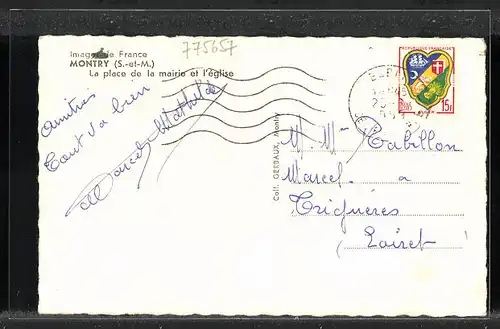 Images de France
MONTRY (S.-et-M.)
La place de la mairie et l'église
775657
Amitiés
Tout va bien
Marcel Mathilde
Coll. GERBAUX, Montry
REPUBLIQUE FRANÇAISE
15F
M. Mme Tabillon
Marcel à
Triguères
(Loiret)